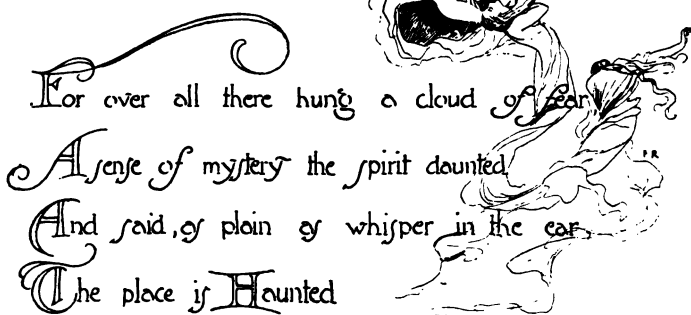 For over all there hung a cloud of fear
A sense of mystery the spirit daunted
And said, as plain as whisper in the ear,
The place is Haunted
F R